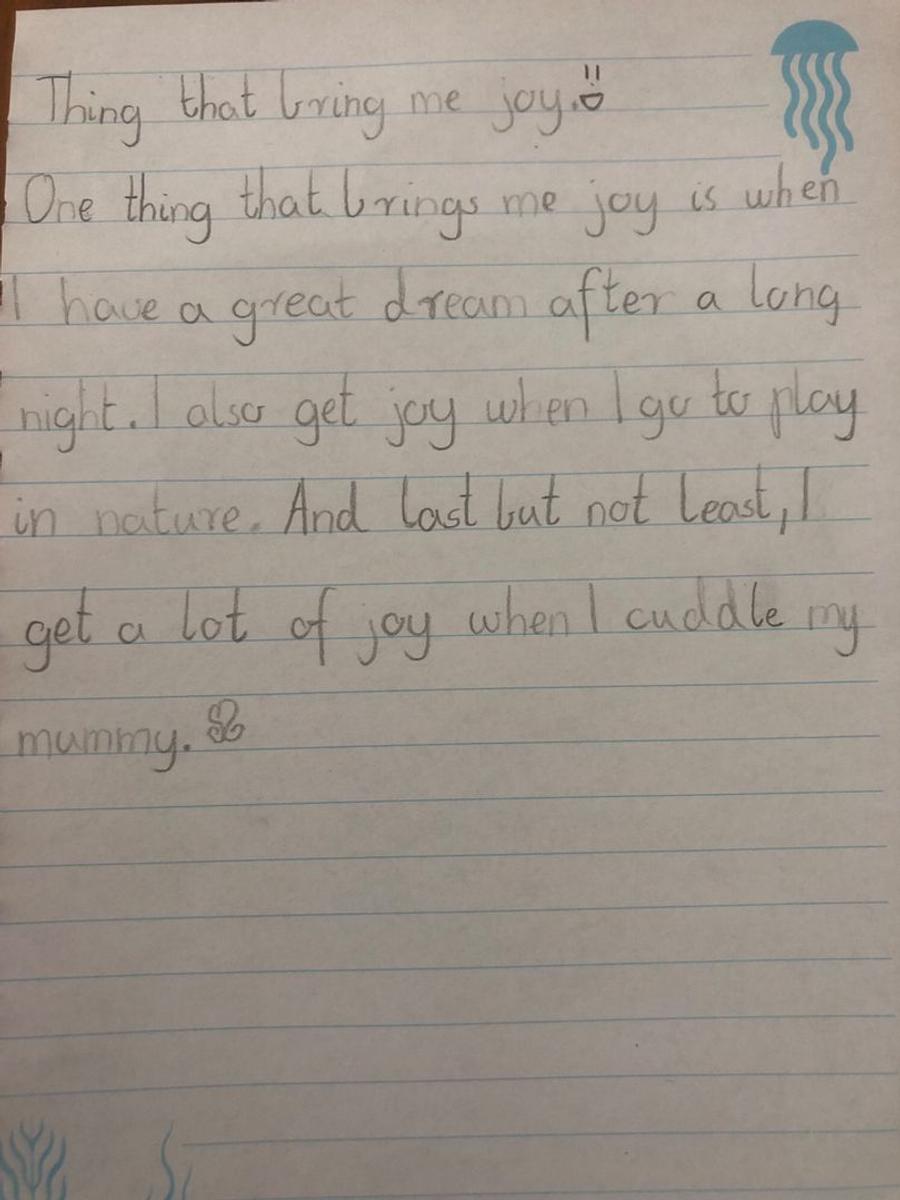 Thing that bring me joy.
One thing that brings me joy is when
I have a great dream after a long
night. I also get joy when I go to play
in nature. And last but not least, I
get a lot of joy when I cuddle my
mummy.